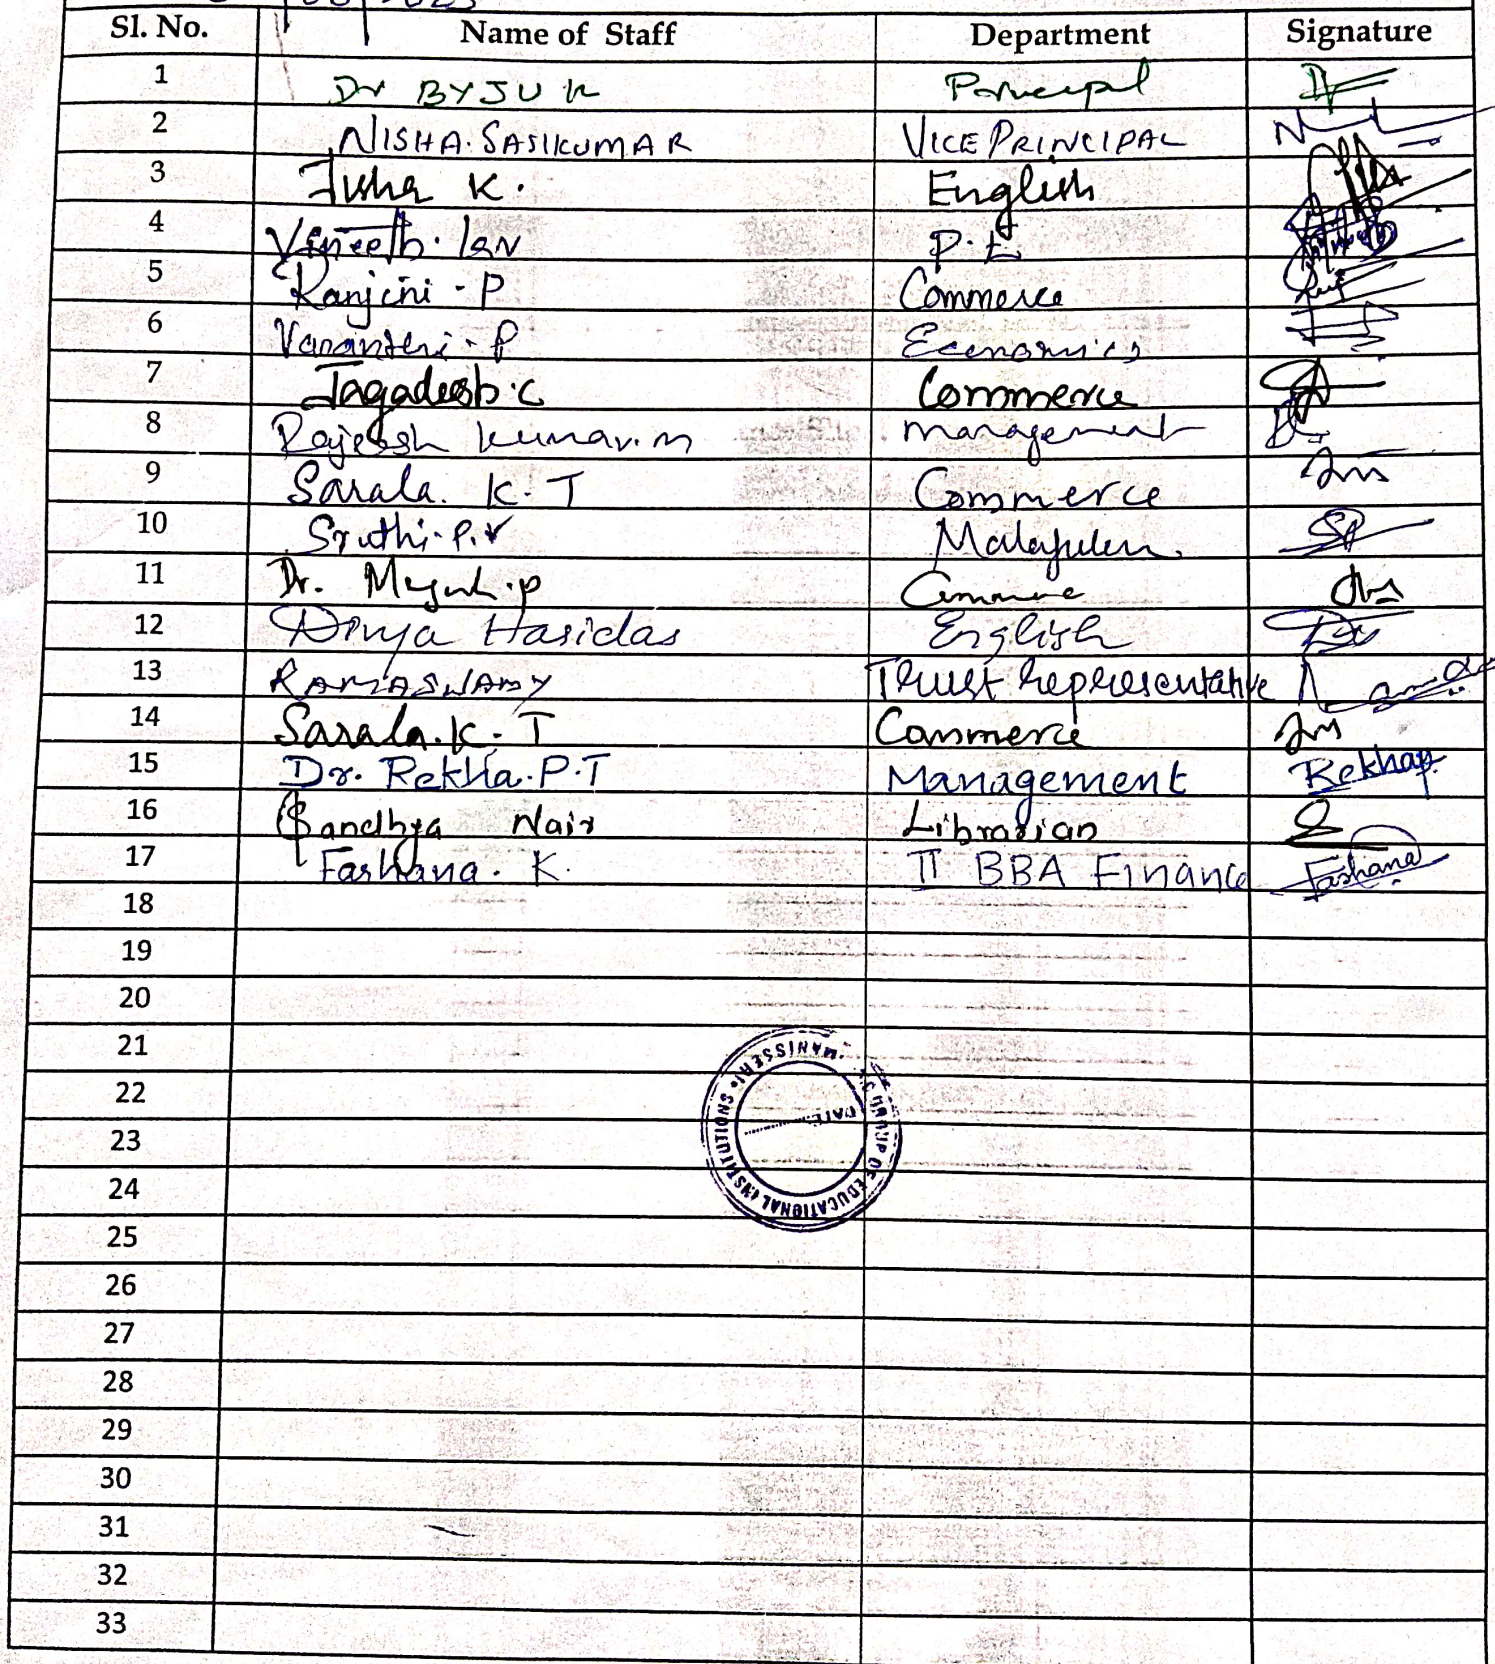 Sl. No. Name of Staff Department Signature
1 Dr BYJU K Principal
2 NISHA. SASIKUMAR VICE PRINCIPAL
3 Jisha K. English
4 Vineeth. P.E
5 Ranjini - P Commerce
6 P Economics
7 Jagadeesh. C Commerce
8 Rajeesh Kumar. m management
9 Sarala. K. T Commerce
10 Sruthi. P. V Malayalam
11 Dr. P Commerce
12 Divya Haridas English
13 RAMASWAMY Trust Representative
14 Sarala. K. T Commerce
15 Dr. Rekha. P. T Management Rekhap
16 Sandhya Nair Librarian
17 Farhana. K. II BBA Finance Farhana
18
19
20
21
22
23
24
25
26
27
28
29
30
31
32
33
GROUP OF EDUCATIONAL INSTITUTIONS * MANISSERY
DATE